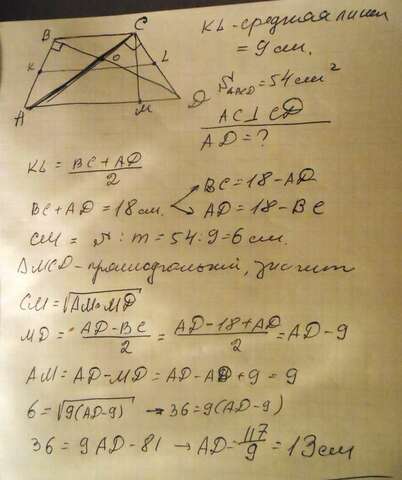 B
C
K
O
L
A
M
D
KL - средняя линия
= 9 см.
S ABCD = 54 см²
AC ⊥ CD
AD = ?
KL = (BC + AD)/2
BC + AD = 18 см. BC = 18 - AD
AD = 18 - BC
CM = S : m = 54 : 9 = 6 см.
ΔMCD - прямоугольный, значит
CM = √(AM · MD)
MD = (AD - BC)/2 = (AD - 18 + AD)/2 = AD - 9
AM = AD - MD = AD - AD + 9 = 9
6 = √(9(AD - 9)) → 36 = 9(AD - 9)
36 = 9AD - 81 → AD = 117/9 = 13 см